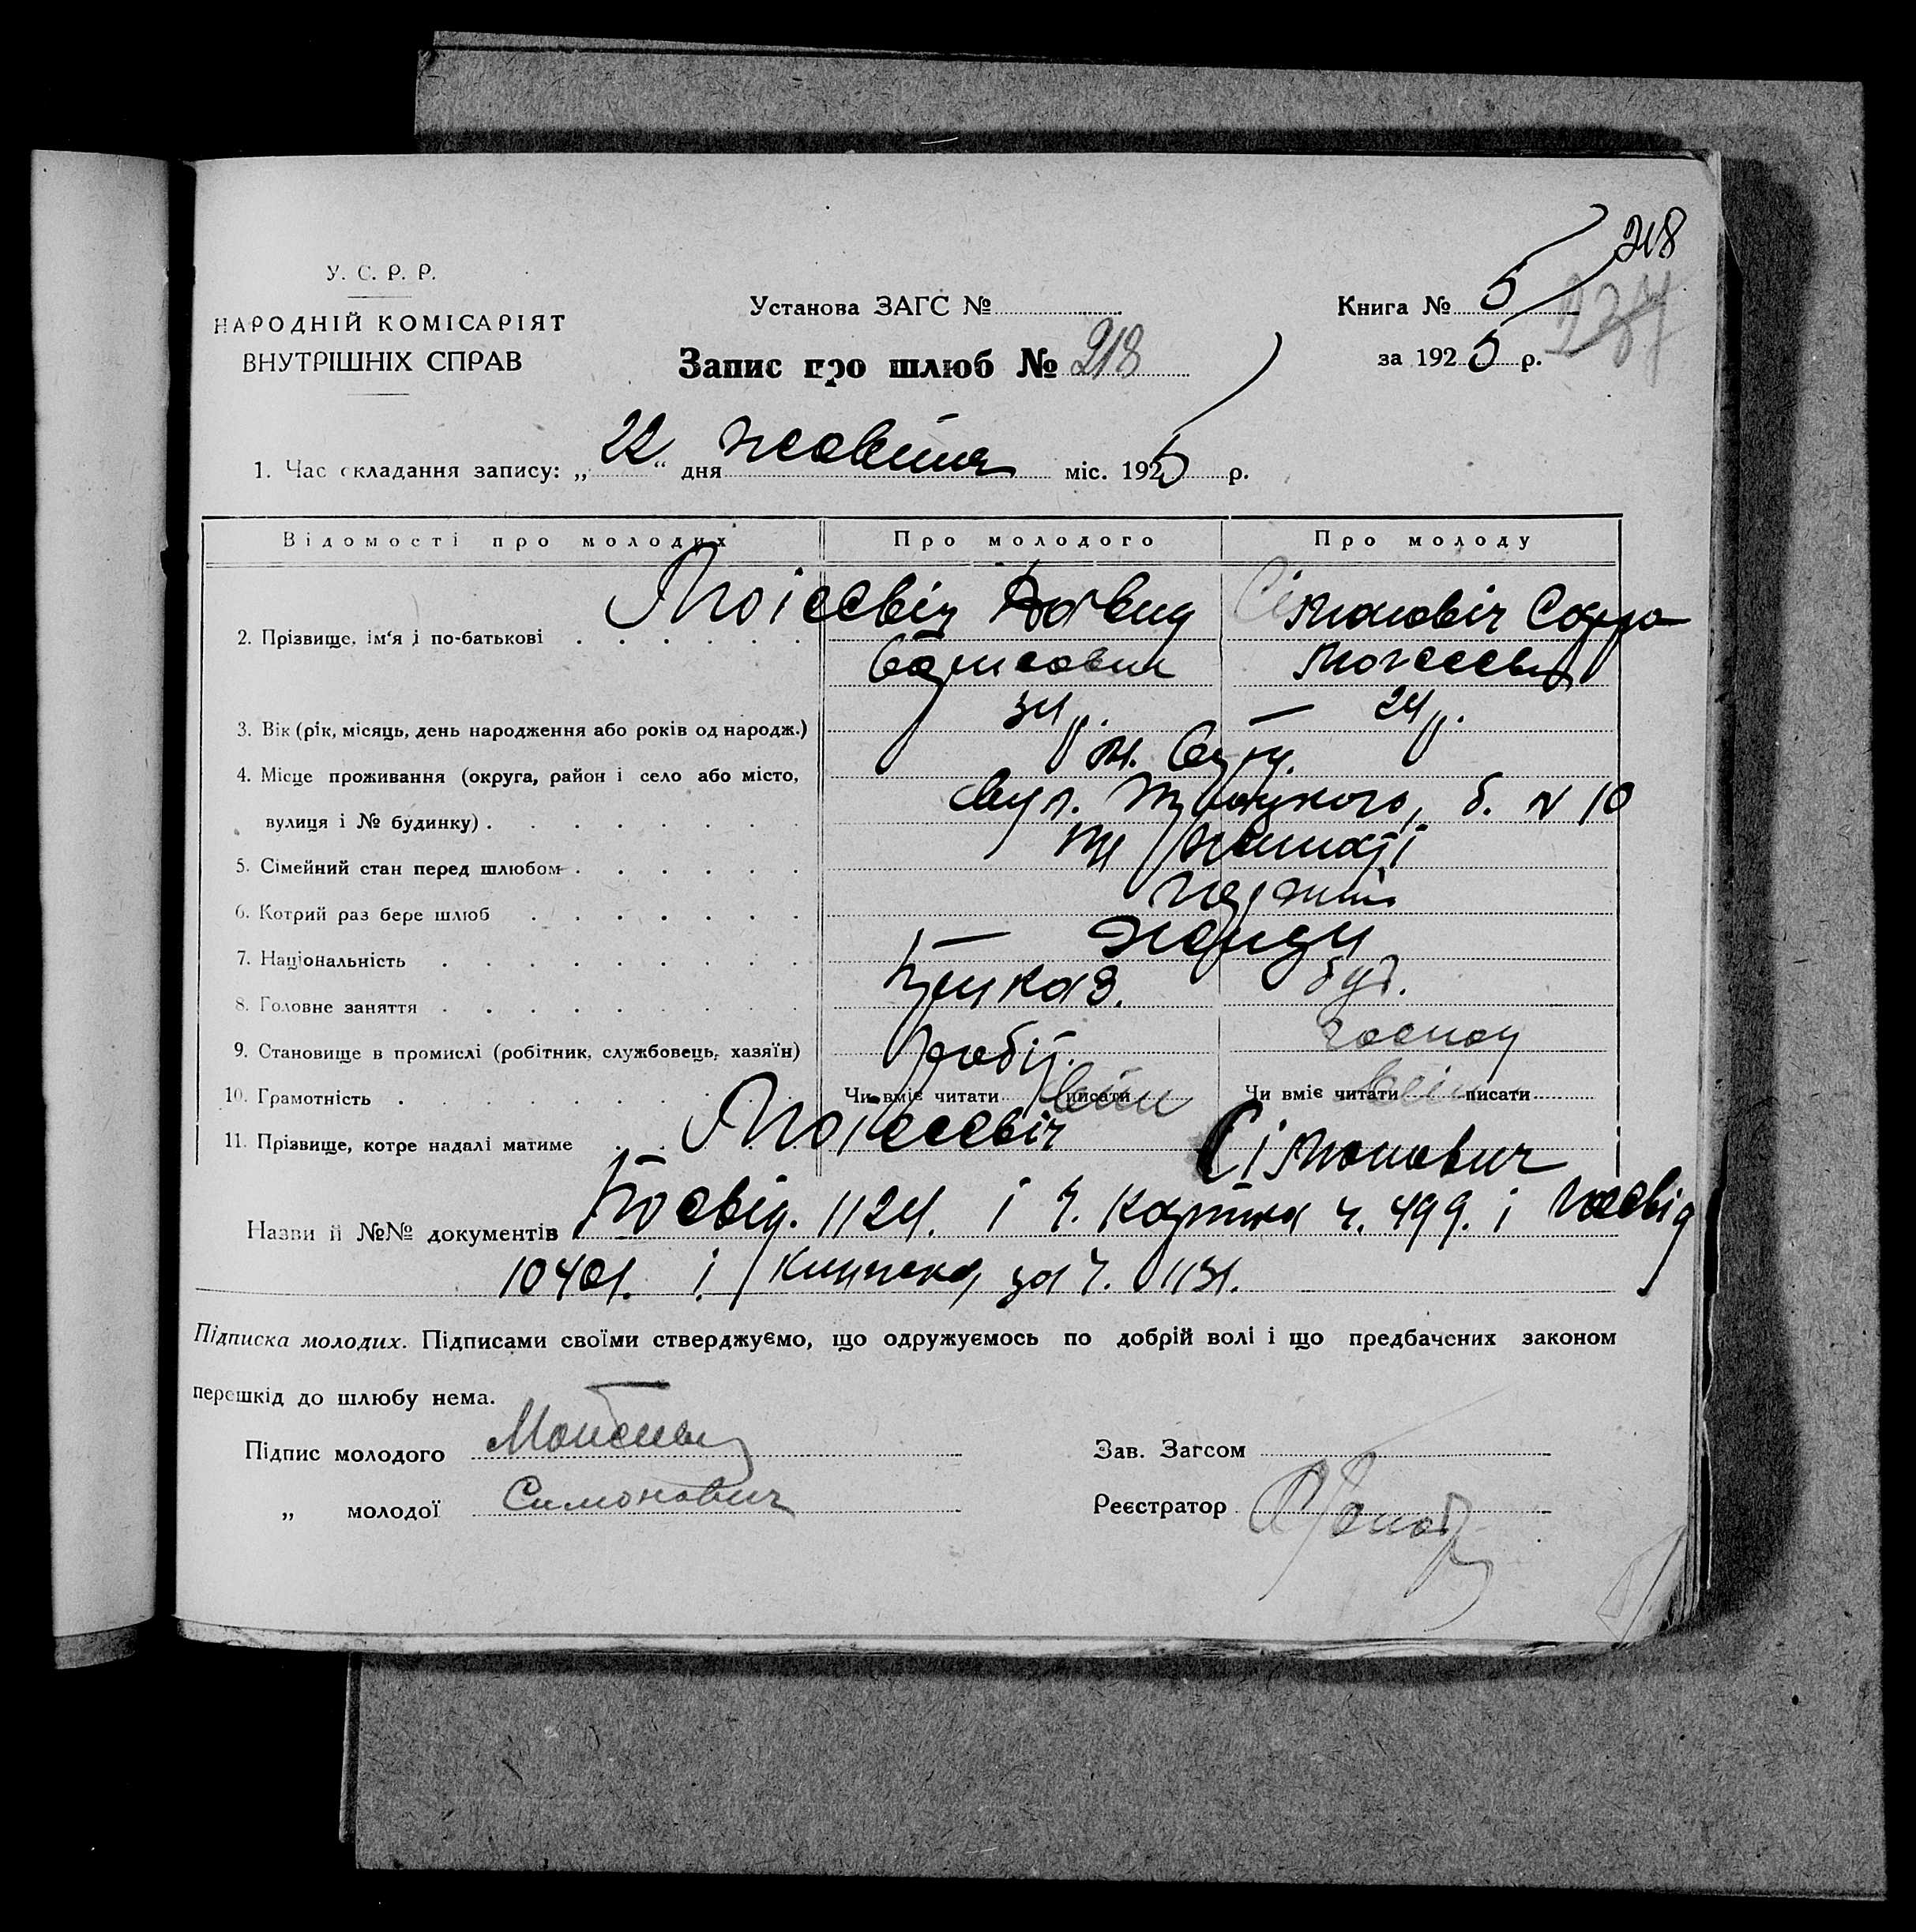 218
У. С. Р. Р.
НАРОДНІЙ КОМІСАРІЯТ
ВНУТРІШНІХ СПРАВ
Установа ЗАГС №
Книга № 5
за 1925 р.
Запис про шлюб № 218
1. Час складання запису: „22“ дня жовтня міс. 1925 р.
Відомості про молодих Про молодого Про молоду
2. Прізвище, ім'я і по-батькові Моісєвіч Давид Сімоновіч Сарра
Борисович
3. Вік (рік, місяць, день народження або років од народж.) 34 р. — 24 р.
4. Місце проживання (округа, район і село або місто, м.
вулиця і № будинку) вул. Троцкого, б. № 10
5. Сімейний стан перед шлюбом не жонаті
6. Котрий раз бере шлюб перший
7. Національність — жиди
8. Головне заняття приказ. дом.
9. Становище в промислі (робітник, службовець, хазяїн) робіт. господ
10. Грамотність Чи вміє читати писати Чи вміє читати писати
11. Прізвище, котре надалі матиме Моісєєвіч Сімонович
Назви й №№ документів Посвід. 1124. і ч. картка ч. 499. і посвід
10401. і книжка за ч. 1131.
Підписка молодих. Підписами своїми стверджуємо, що одружуємось по добрій волі і що предбачених законом
перешкід до шлюбу нема.
Підпис молодого Моисеевич Зав. Загсом
„ молодої Симонович Реєстратор